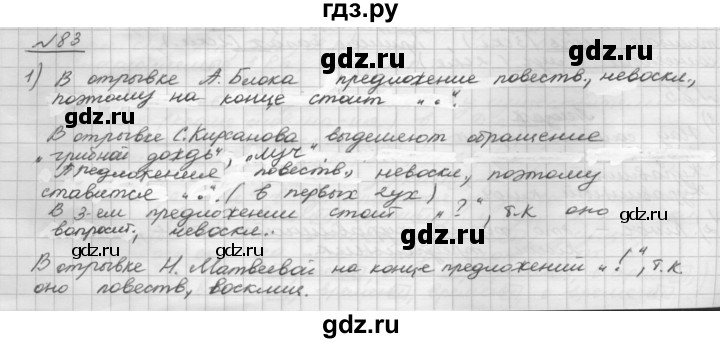 гдз.ру
№83
1) В отрывке А. Блока предложение повеств., невоскл.,
поэтому на конце стоит „.“.
В отрывке С. Кирсанова выделяют обращение
„грибной дождь“, „луч“.
Предложения повеств., невоскл., поэтому
ставится „.“. (в первых 2ух)
В 3-ем предложении стоит „?“, т.к оно
вопросит., невоскл..
В отрывке Н. Матвеевой на конце предложений „!“, т.к.
оно повеств, восклиц.
gdz.ru
gdz.ru
gdz.ru
gdz.ru
gdz.ru
gdz.ru
gdz.ru
gdz.ru
gdz.ru